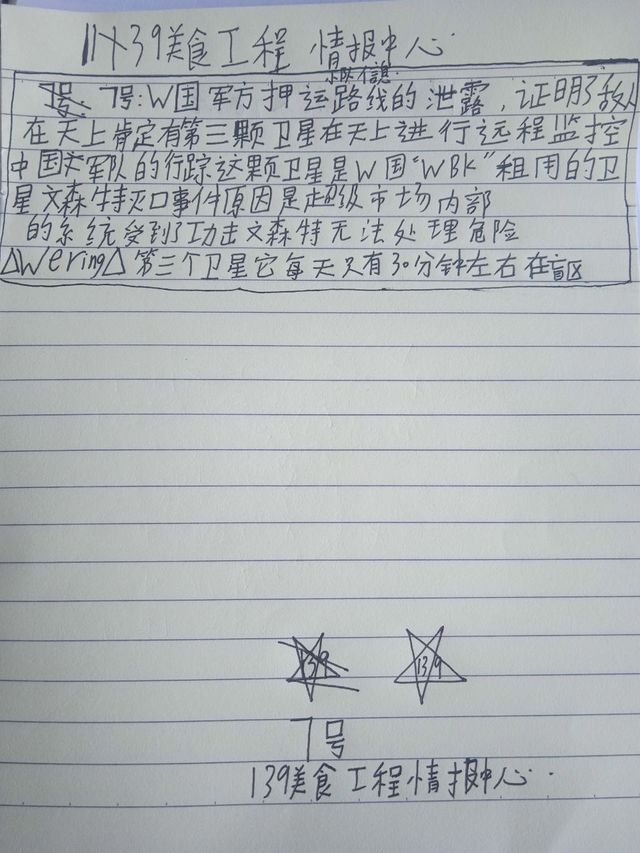 139美食工程 情报中心
信息
7号:W国军方押运路线的泄露,证明了敌人
在天上肯定有第三颗卫星在天上进行远程监控
中国军队的行踪这颗卫星是W国"WBK"租用的卫
星文森特灭口事件原因是超级市场内部
的系统受到了功击文森特无法处理危险
△Wering△ 第三个卫星它每天只有30分钟左右在盲区
139 139
7号
139美食工程情报中心..